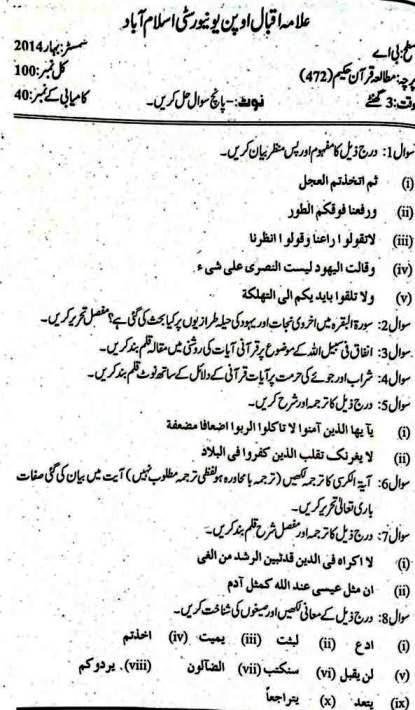 علامہ اقبال اوپن یونیورسٹی اسلام آباد
سطح: بی اے سمسٹر: بہار 2014
پرچہ: مطالعہ قرآن حکیم (472) کل نمبر: 100
وقت: 3 گھنٹے نوٹ:- پانچ سوال حل کریں۔ کامیابی کے نمبر: 40
سوال 1: درج ذیل کا مفہوم اور پس منظر بیان کریں۔
(i) ثم اتخذتم العجل
(ii) ورفعنا فوقكم الطور
(iii) لاتقولو ا راعنا وقولو ا انظرنا
(iv) وقالت اليهود ليست النصرى على شى ء
(v) ولا تلقوا بايد يكم الى التهلكة
سوال 2: سورۃ البقرہ میں اخروی نجات اور یہود کی حیلہ طرازیوں پر کیا بحث کی گئی ہے؟ مفصل تحریر کریں۔
سوال 3: انفاق فی سبیل اللہ کے موضوع پر قرآنی آیات کی روشنی میں مقالہ قلم بند کریں۔
سوال 4: شراب اور جوئے کی حرمت پر آیات قرآنی کے دلائل کے ساتھ نوٹ قلم بند کریں۔
سوال 5: درج ذیل کا ترجمہ اور شرح کریں۔
(i) يآ يها الذين آمنوا لا تاكلوا الربوا اضعافا مضعفة
(ii) لا يغرنك تقلب الذين كفروا فى البلاد
سوال 6: آیۃ الکرسی کا ترجمہ لکھیں (ترجمہ با محاورہ ہو لفظی ترجمہ مطلوب نہیں) آیت میں بیان کی گئی صفات
باری تعالیٰ تحریر کریں۔
سوال 7: درج ذیل کا ترجمہ اور مفصل شرح قلم بند کریں۔
(i) لا اكراه فى الدين قدتبين الرشد من الغى
(ii) ان مثل عيسى عند الله كمثل آدم
سوال 8: درج ذیل کے معانی لکھیں اور صیغوں کی شناخت کریں۔
(i) ادع (ii) لبثت (iii) يميت (iv) اخذتم
(v) لن يقبل (vi) سنكتب (vii) الضآلون (viii) يردوكم
(ix) يتعد (x) يتراجعاً